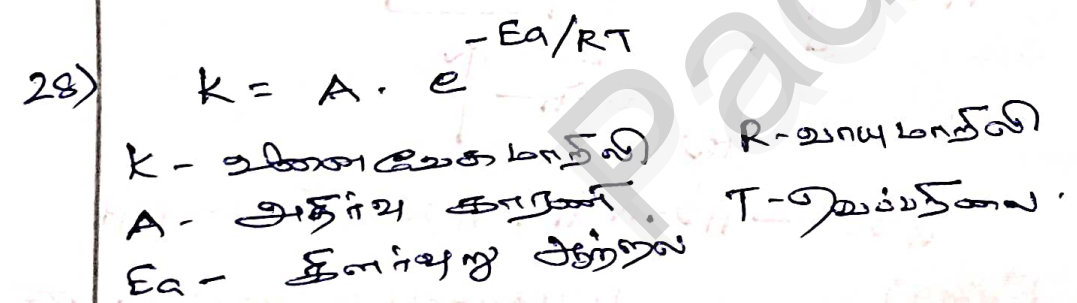 28) K = A . e^-Ea/RT
K - வினைவேக மாறிலி R - வாயு மாறிலி
A - அதிர்வு காரணி . T - வெப்பநிலை .
Ea - கிளர்வுறு ஆற்றல்
Pad